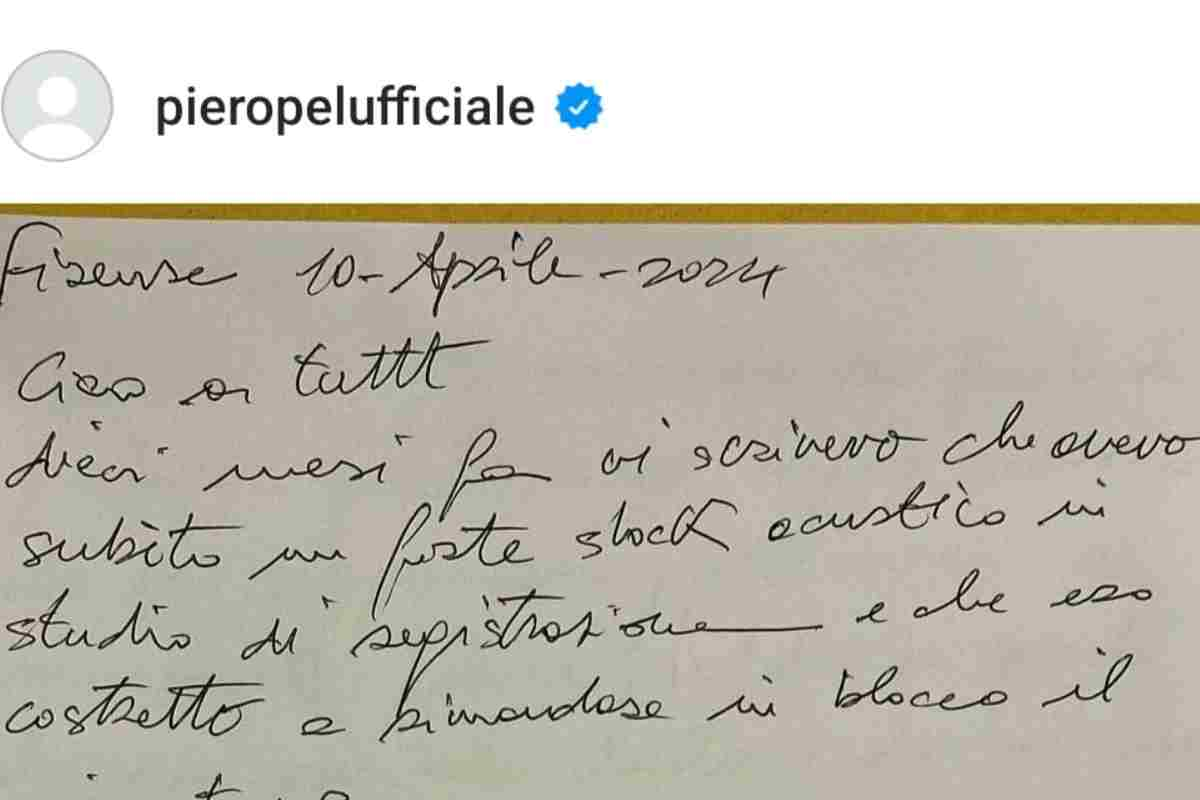 pieropelufficiale
Firenze 10-Aprile-2024
Ciao a tutt
dieci mesi fa vi scrivevo che avevo
subìto un forte shock acustico in
studio di registrazione e che ero
costretto a rimandare in blocco il